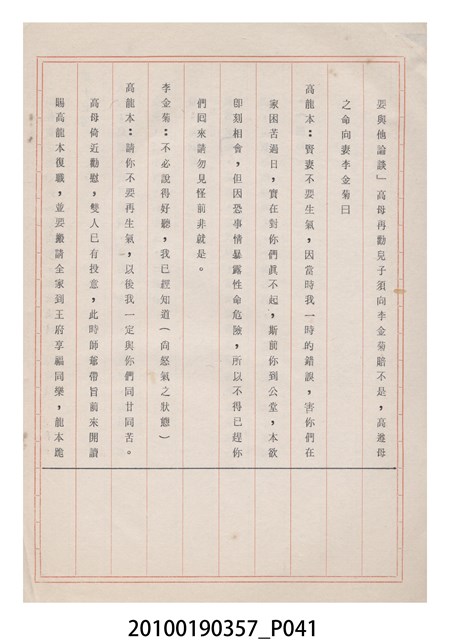 要與他論談」高母再勸兒子須向李金菊賠不是，高遵母
之命向妻李金菊曰
高龍本：賢妻不要生氣，因當時我一時的錯誤，害你們在
家困苦過日，實在對你們眞不起，斯前你到公堂，本欲
卽刻相會，但因恐事情暴露性命危險，所以不得已趕你
們囘來請勿見怪前非就是。
李金菊：不必說得好聽，我已經知道（向怒氣之狀態）
高龍本：請你不要再生氣，以後我一定與你們同甘同苦。
高母倚近勸慰，雙人已有投意，此時師爺帶旨前來開讀
賜高龍本復職，並要嚴請全家到王府享福同樂，龍本跪
20100190357_P041